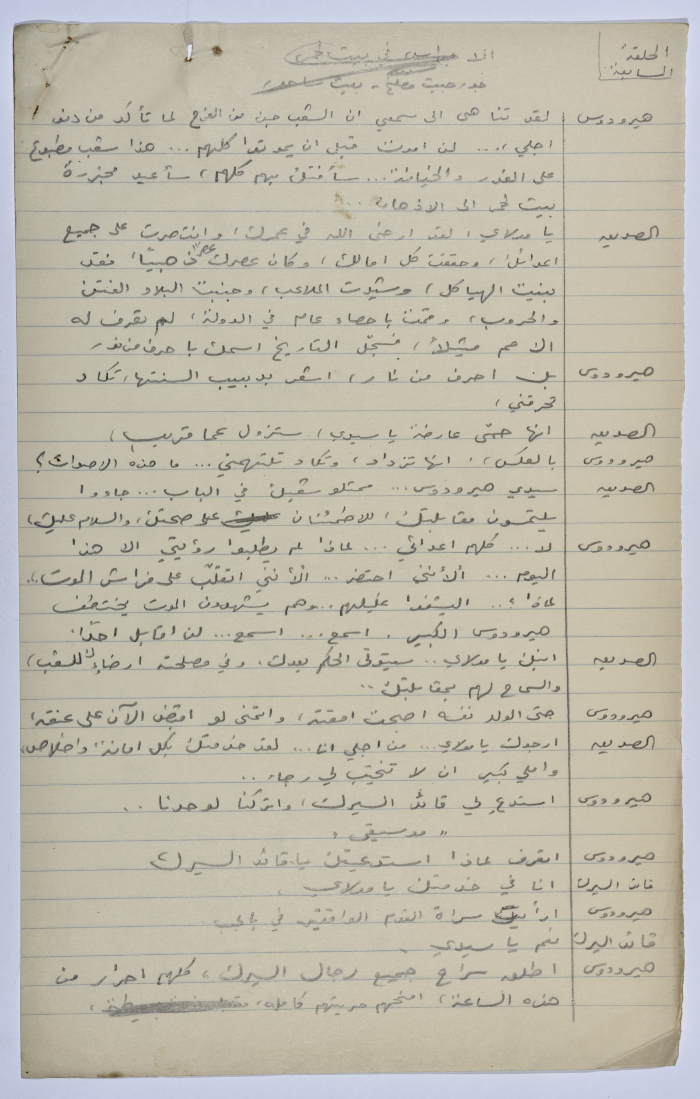 الحلقة
السابعة
هيرودوس لقد تناهى الى سمعي ان الشعب جن من الفرح لما تأكد من دنو
اجلي ... لن اموت قبل ان يموتوا كلهم ... هذا شعب مطبوع
على الغدر والخيانة ... سأفتك بهم كلهم ، سأعيد مجزرة
بيت لحم الى الاذهان ..
الصديق يا مولاي ، لقد ارضى الله في عمرك ، وانتصرت على جميع
اعدائك ، وحققت كل امالك ، وكان عصرك عصرا ذهبيًا ، فقد
بنيت الهياكل ، وشيدت الملاعب ، وجنبت البلاد الفتن
والحروب ، وقمت باحصاء عام في الدولة ، لم تعرف له
الامم مثيلاً ، فسجّل التاريخ اسمك باحرف من نور
هيرودوس بل احرف من نار ، اشعر بدبيب السنتها ، تكاد
تحرقني ،
الصديق انها حمّى عارضة يا سيدي ، ستزول عما قريب ،
هيرودوس بالعكس ، انها تزداد ، وتكاد تلتهمني ... ما هذه الاصوات ؟
الصديق سيدي هيرودوس ... ممثلو شعبك في الباب ... جاءوا
يلتمسون مقابلتك ، للاطمئنان على صحتك ، والسلام عليك ،
هيرودوس لا ... كلهم اعدائي ... لماذا لم يطلبوا رؤيتي الا هذا
اليوم ... ألأنني احتضر ... ألأنني اتقلّب على فراش الموت ..
لماذا ؟ ... اليشفوا غليلهم .. وهم يشهدون الموت يختطف
هيرودوس الكبير . اسمع ... اسمع ... لن اقابل احدًا .
الصديق ابنك يا مولاي .. سيتولى الحكم بعدك . وفي مصلحته ارضاء الشعب ،
والسماح لهم بمقابلتك ..
هيرودوس حتى الولد نفسه اصبحت امقته ، واتمنى لو اقبض الآن على عنقه ،
الصديق ارجوك يا مولاي ... من اجلي انا ... لقد خدمتك بكل امانة ، واخلاص ،
واملي كبير ان لا تخيّب لي رجاء ..
هيرودوس استدعِ لي قائد السيرك ، واتركنا لوحدنا ..
" موسيقى "
هيرودوس اتعرف لماذا استدعيتك يا قائد السيرك
قائد السيرك انا في خدمتك يا مولاي .
هيرودوس أرأيت سراة القوم الواقفين في بابي
قائد السيرك نعم يا سيدي .
هيرودوس اطلق سراح جميع رجال السيرك ، كلهم احرار من
هذه الساعة ، امنحهم حريتهم كاملة ،